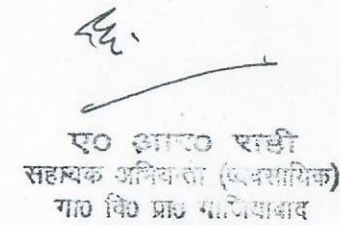 ए० आर० राही
सहायक अभियन्ता (व्यवसायिक)
गा० वि० प्रा० गाजियाबाद